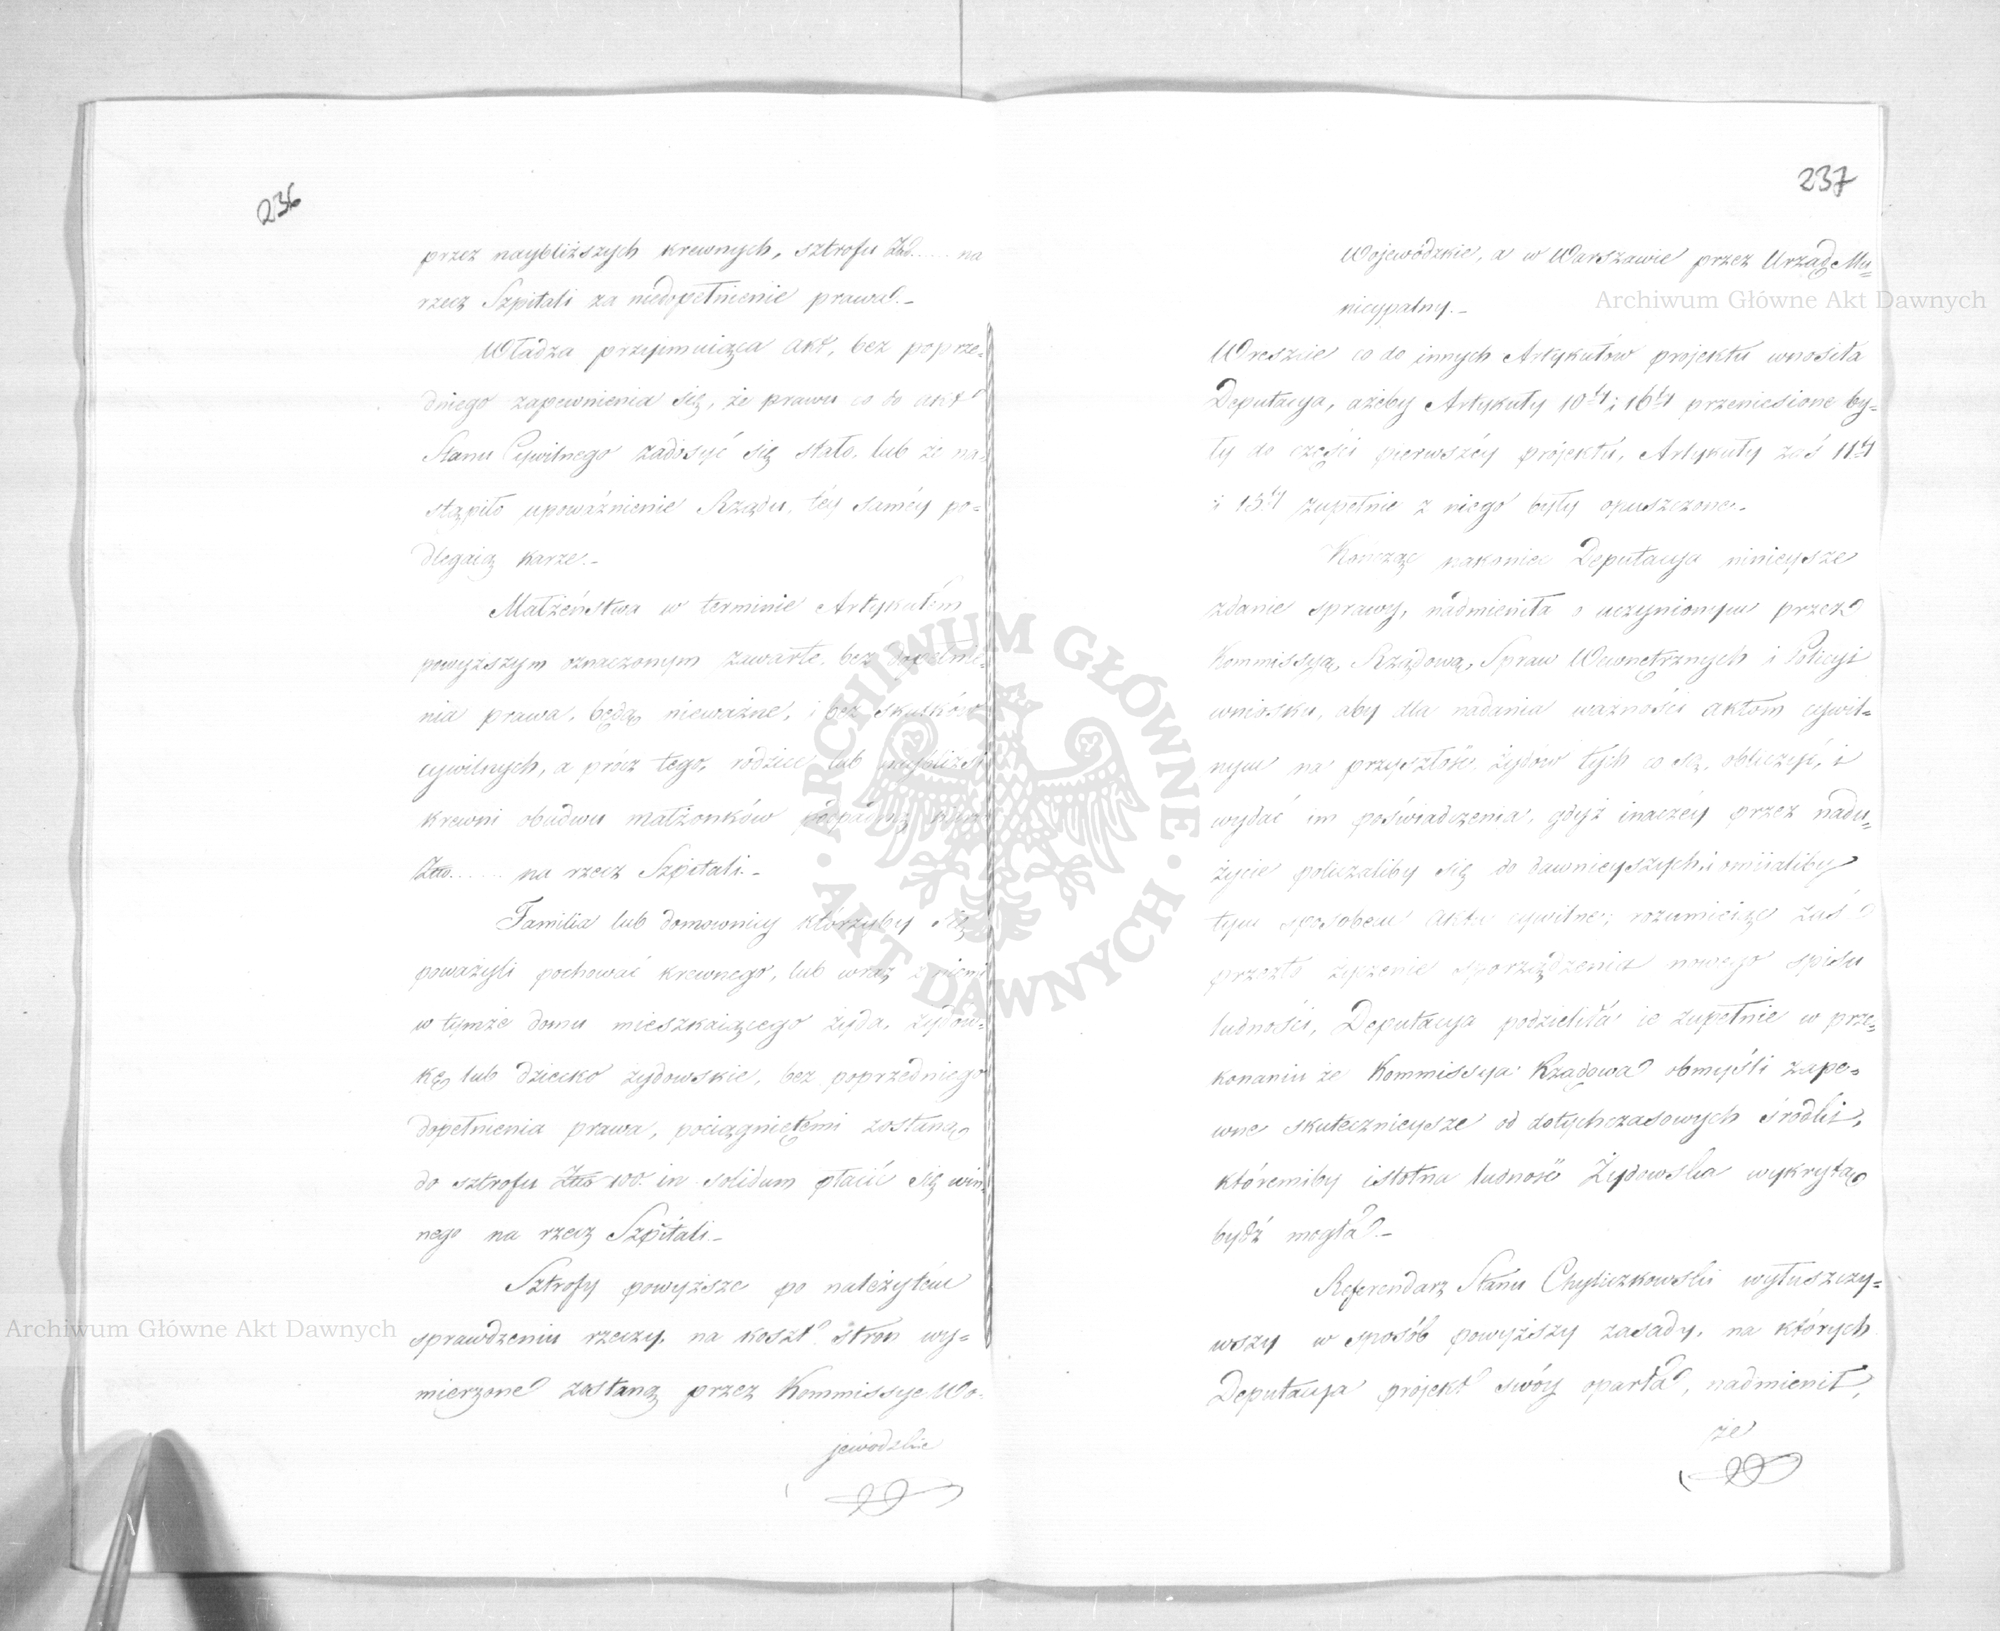 236
przez naybliższych krewnych, sztrofu Złł..... na
rzecz Szpitali za niedopełnienie prawa.-
Władza przyimuiąca akt, bez poprze-
dniego zapewnienia się, że prawu co do akt
Stanu Cywilnego zadosyć się stało, lub że na-
stąpiło upoważnienie Rządu, téy saméy po-
dlegaią karze.-
Małżeństwa w terminie Artykułem
powyższym oznaczonym zawarte, bez dopełnie-
nia prawa, będą nieważne, i bez skutków
cywilnych, a prócz tego, rodzice lub naybliżsi
krewni obudwu małżonków podpadną karze
Złło...... na rzecz Szpitali.-
Familia lub domownicy którzyby się
poważyli pochować krewnego, lub wraz z niemi
w tymże domu mieszkaiącego żyda, żydów-
kę lub dziecko żydowskie, bez poprzedniego
dopełnienia prawa, pociągniętemi zostaną
do sztrofu Złło 100. in solidum płacić się win-
nego na rzecz Szpitali.-
Sztrofy powyższe po należytém
sprawdzeniu rzeczy, na koszt stron wy-
mierzone zostaną przez Kommissye Wo-
jewodzkie
237
Wojewódzkie, a w Warszawie przez Urząd Mu=
nicypalny.-
Wreszcie co do innych Artykułów projektu wnosiła
Deputacya, ażeby Artykuły 10ty i 16ty przeniesione by-
ły do części pierwszéy projektu, Artykuły zaś 11ty
i 15ty zupełnie z niego były opuszczone.-
Kończąc nakoniec Deputacya ninieysze
zdanie sprawy, nadmieniła o uczynionym przez
Kommissyą Rządową Spraw Wewnętrznych i Policyi
wniosku, aby dla nadania ważności aktom cywil-
nym na przyszłość, żydów tych co są, obliczyć, i
wydać im poświadczenia, gdyż inaczéy przez nadu-
życie policzaliby się do dawnieyszych i omiialiby
tym sposobem akta cywilne; rozumieiąc zaś
przezto życzenie sporządzenia nowego spisu
ludności, Deputacya podzieliła ie zupełnie w prze-
konaniu że Kommissya Rządowa obmyśli zape-
wne skutecznieysze od dotychczasowych środki,
któremiby istotna ludność Żydowska wykrytą
bydź mogła.-
Referendarz Stanu Chyliczkowski wyłuszczy=
wszy w sposób powyższy zasady, na których
Deputacya projekt swóy oparła, nadmienił,
że
Archiwum Główne Akt Dawnych
Archiwum Główne Akt Dawnych
ARCHIWUM GŁÓWNE
AKT DAWNYCH